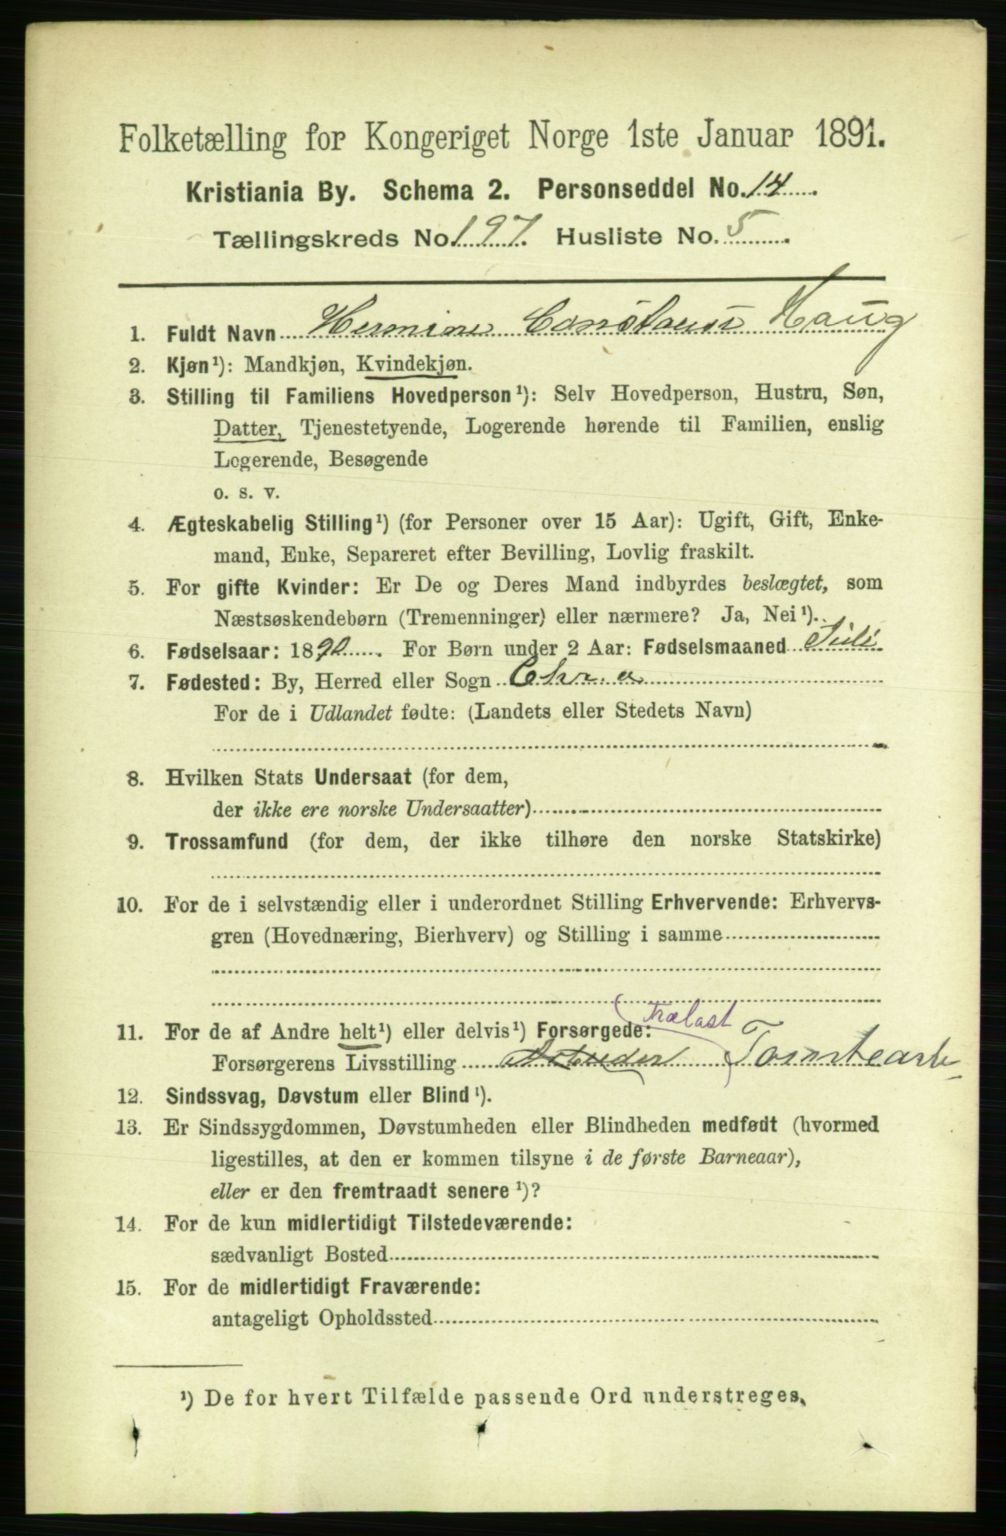 Folketælling for Kongeriget Norge 1ste Januar 1891.
Kristiania By. Schema 2. Personseddel No. 14
Tællingskreds No. 197. Husliste No. 5
1. Fuldt Navn Hermine Constanse Haug
2. Kjøn¹): Mandkjøn, Kvindekjøn.
3. Stilling til Familiens Hovedperson¹): Selv Hovedperson, Hustru, Søn,
Datter, Tjenestetyende, Logerende hørende til Familien, enslig
Logerende, Besøgende
o. s. v.
4. Ægteskabelig Stilling¹) (for Personer over 15 Aar): Ugift, Gift, Enke-
mand, Enke, Separeret efter Bevilling, Lovlig fraskilt.
5. For gifte Kvinder: Er De og Deres Mand indbyrdes beslægtet, som
Næstsøskendebørn (Tremenninger) eller nærmere? Ja, Nei¹).
6. Fødselsaar: 1890. For Børn under 2 Aar: Fødselsmaaned Juli
7. Fødested: By, Herred eller Sogn Chr.a
For de i Udlandet fødte: (Landets eller Stedets Navn)
8. Hvilken Stats Undersaat (for dem,
der ikke ere norske Undersaatter)
9. Trossamfund (for dem, der ikke tilhøre den norske Statskirke)
10. For de i selvstændig eller i underordnet Stilling Erhvervende: Erhvervs-
gren (Hovednæring, Bierhverv) og Stilling i samme
(Trælast
11. For de af Andre helt¹) eller delvis¹) Forsørgede:
Forsørgerens Livsstilling Arbeider) Tomtearb
12. Sindssvag, Døvstum eller Blind¹).
13. Er Sindssygdommen, Døvstumheden eller Blindheden medfødt (hvormed
ligestilles, at den er kommen tilsyne i de første Barneaar),
eller er den fremtraadt senere¹)?
14. For de kun midlertidigt Tilstedeværende:
sædvanligt Bosted
15. For de midlertidigt Fraværende:
antageligt Opholdssted
¹) De for hvert Tilfælde passende Ord understreges.